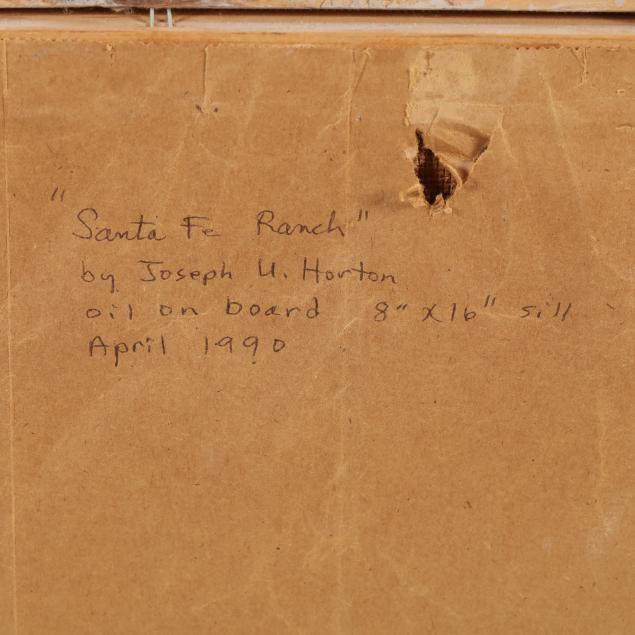 "Santa Fe Ranch"
by Joseph U. Horton
oil on board 8" X 16" sill
April 1990